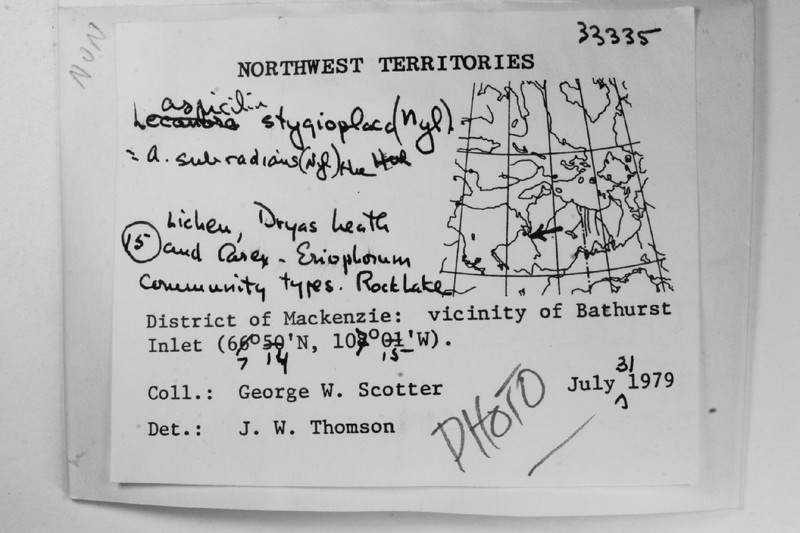 NUN
33335
NORTHWEST TERRITORIES
aspicilia
Lecanora stygioplaca (Nyl).
= A. subradians (Nyl) Hue
15
Lichen, Dryas heath
and Carex - Eriophorum
Community types. Rock Lake
District of Mackenzie: vicinity of Bathurst
Inlet (66°50'N, 10 °01'W).
7 14 15
31
Coll.: George W. Scotter July 1979
Det.: J. W. Thomson
PHOTO